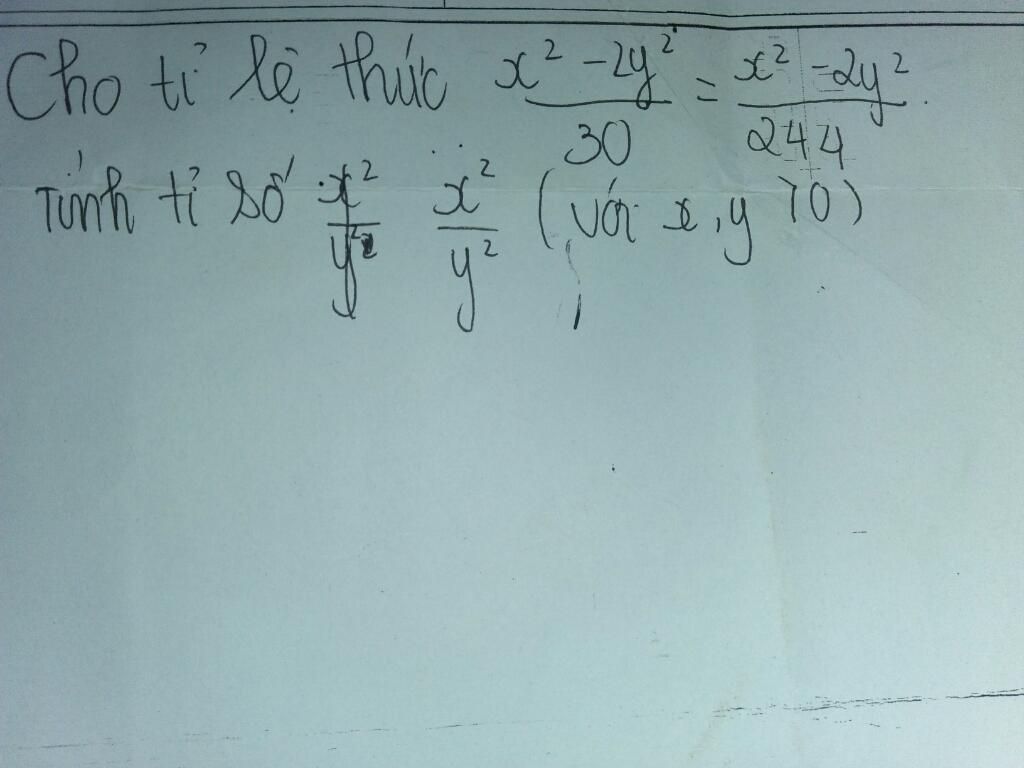 Cho tỉ lệ thức x² - 2y² / 30 = x² - 2y² / 244.
Tính tỉ số x² / y² x² / y² (với x, y > 0)